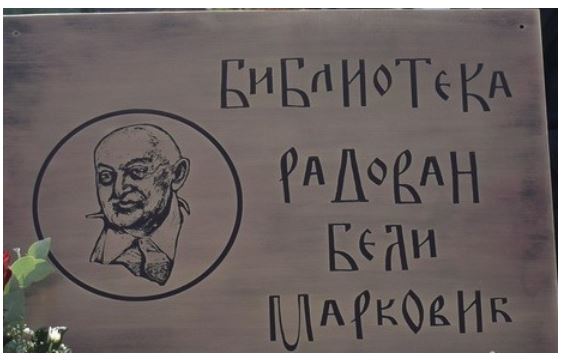 БИБЛИОТЕКА
РАДОВАН
БЕЛИ
МАРКОВИЋ